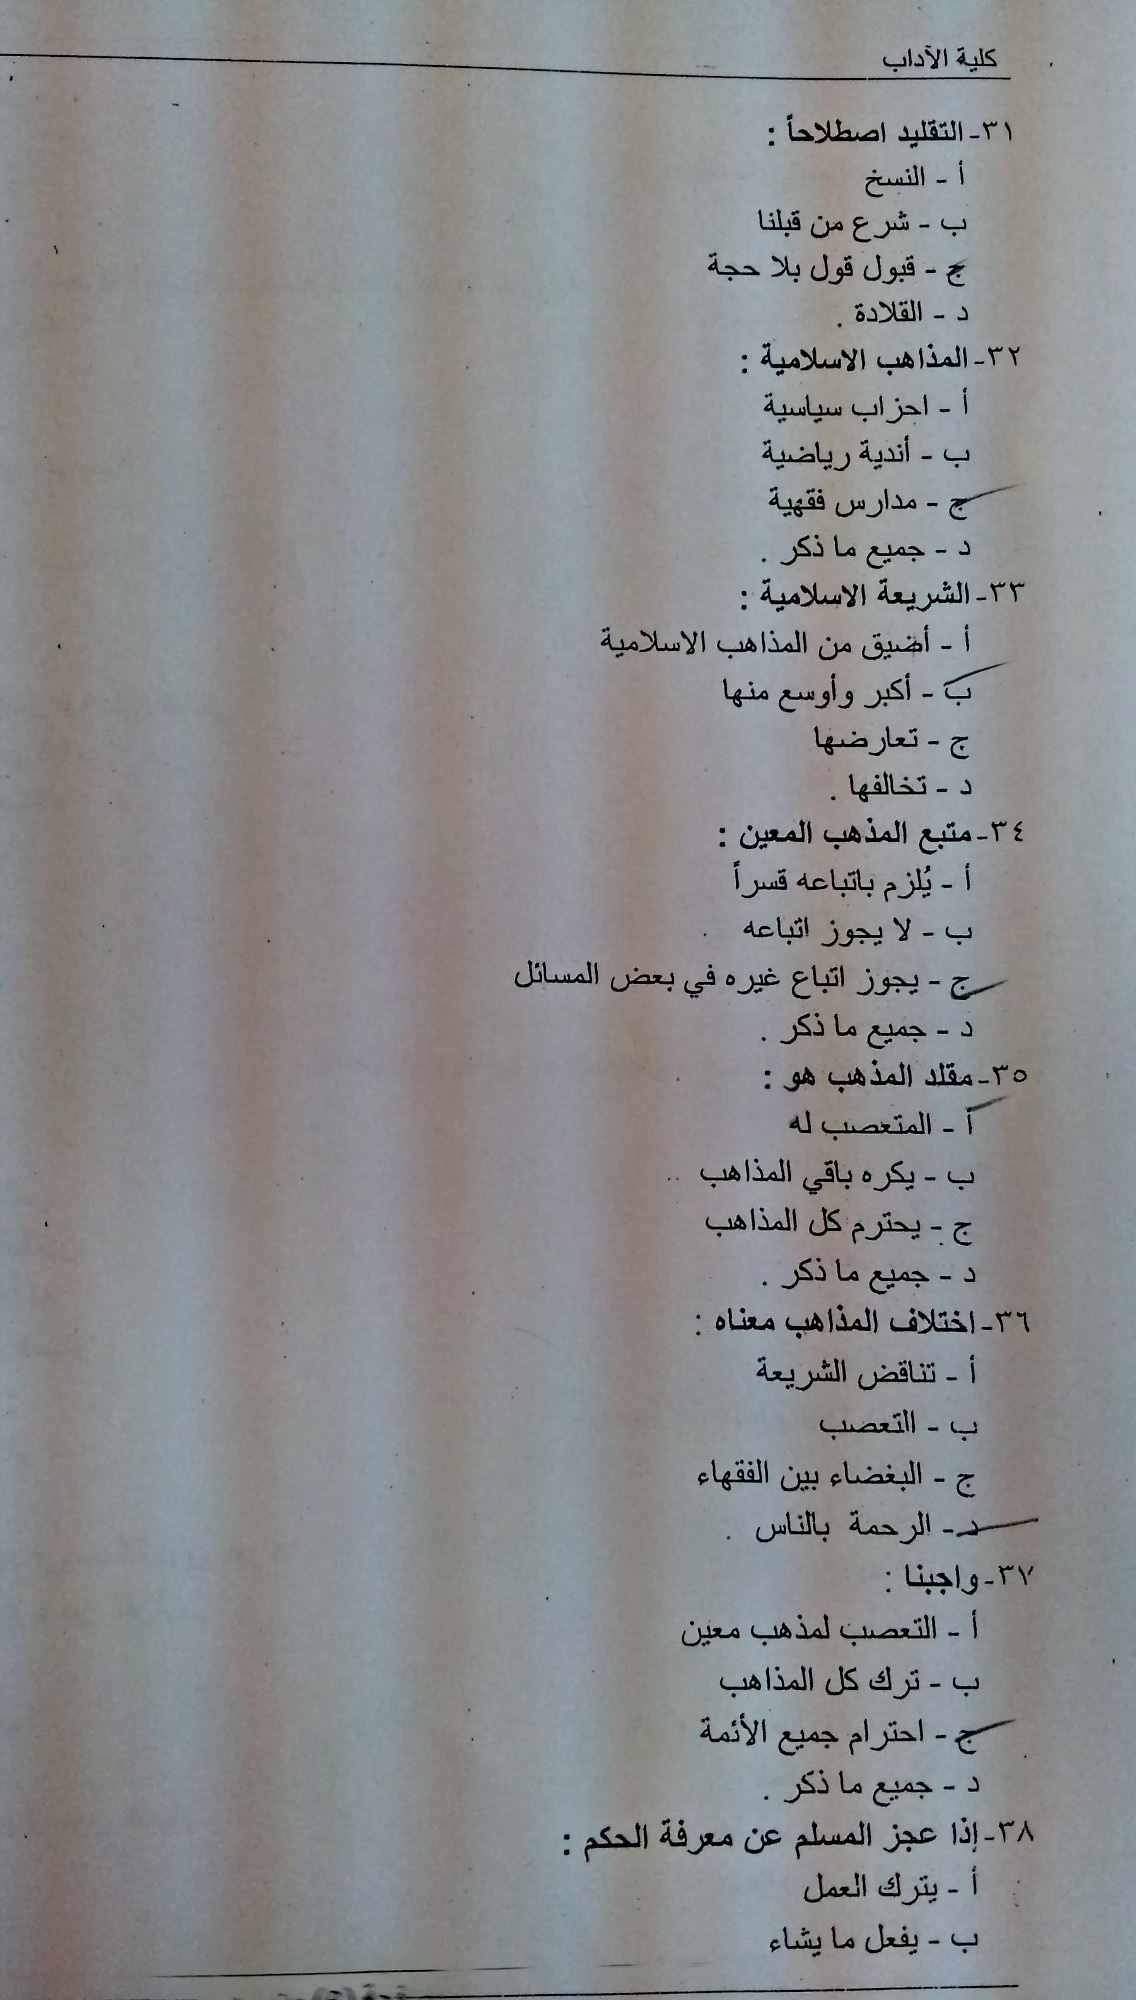 كلية الآداب
٣١- التقليد اصطلاحاً :
أ - النسخ
ب - شرع من قبلنا
ج - قبول قول بلا حجة
د - القلادة .
٣٢- المذاهب الاسلامية :
أ - احزاب سياسية
ب - أندية رياضية
ج - مدارس فقهية
د - جميع ما ذكر .
٣٣- الشريعة الاسلامية :
أ - أضيق من المذاهب الاسلامية
ب - أكبر وأوسع منها
ج - تعارضها
د - تخالفها .
٣٤- متبع المذهب المعين :
أ - يُلزم باتباعه قسراً
ب - لا يجوز اتباعه
ج - يجوز اتباع غيره في بعض المسائل
د - جميع ما ذكر .
٣٥- مقلد المذهب هو :
أ - المتعصب له
ب - يكره باقي المذاهب
ج - يحترم كل المذاهب
د - جميع ما ذكر .
٣٦- اختلاف المذاهب معناه :
أ - تناقض الشريعة
ب - التعصب
ج - البغضاء بين الفقهاء
د - الرحمة بالناس .
٣٧- واجبنا :
أ - التعصب لمذهب معين
ب - ترك كل المذاهب
ج - احترام جميع الأئمة
د - جميع ما ذكر .
٣٨- إذا عجز المسلم عن معرفة الحكم :
أ - يترك العمل
ب - يفعل ما يشاء